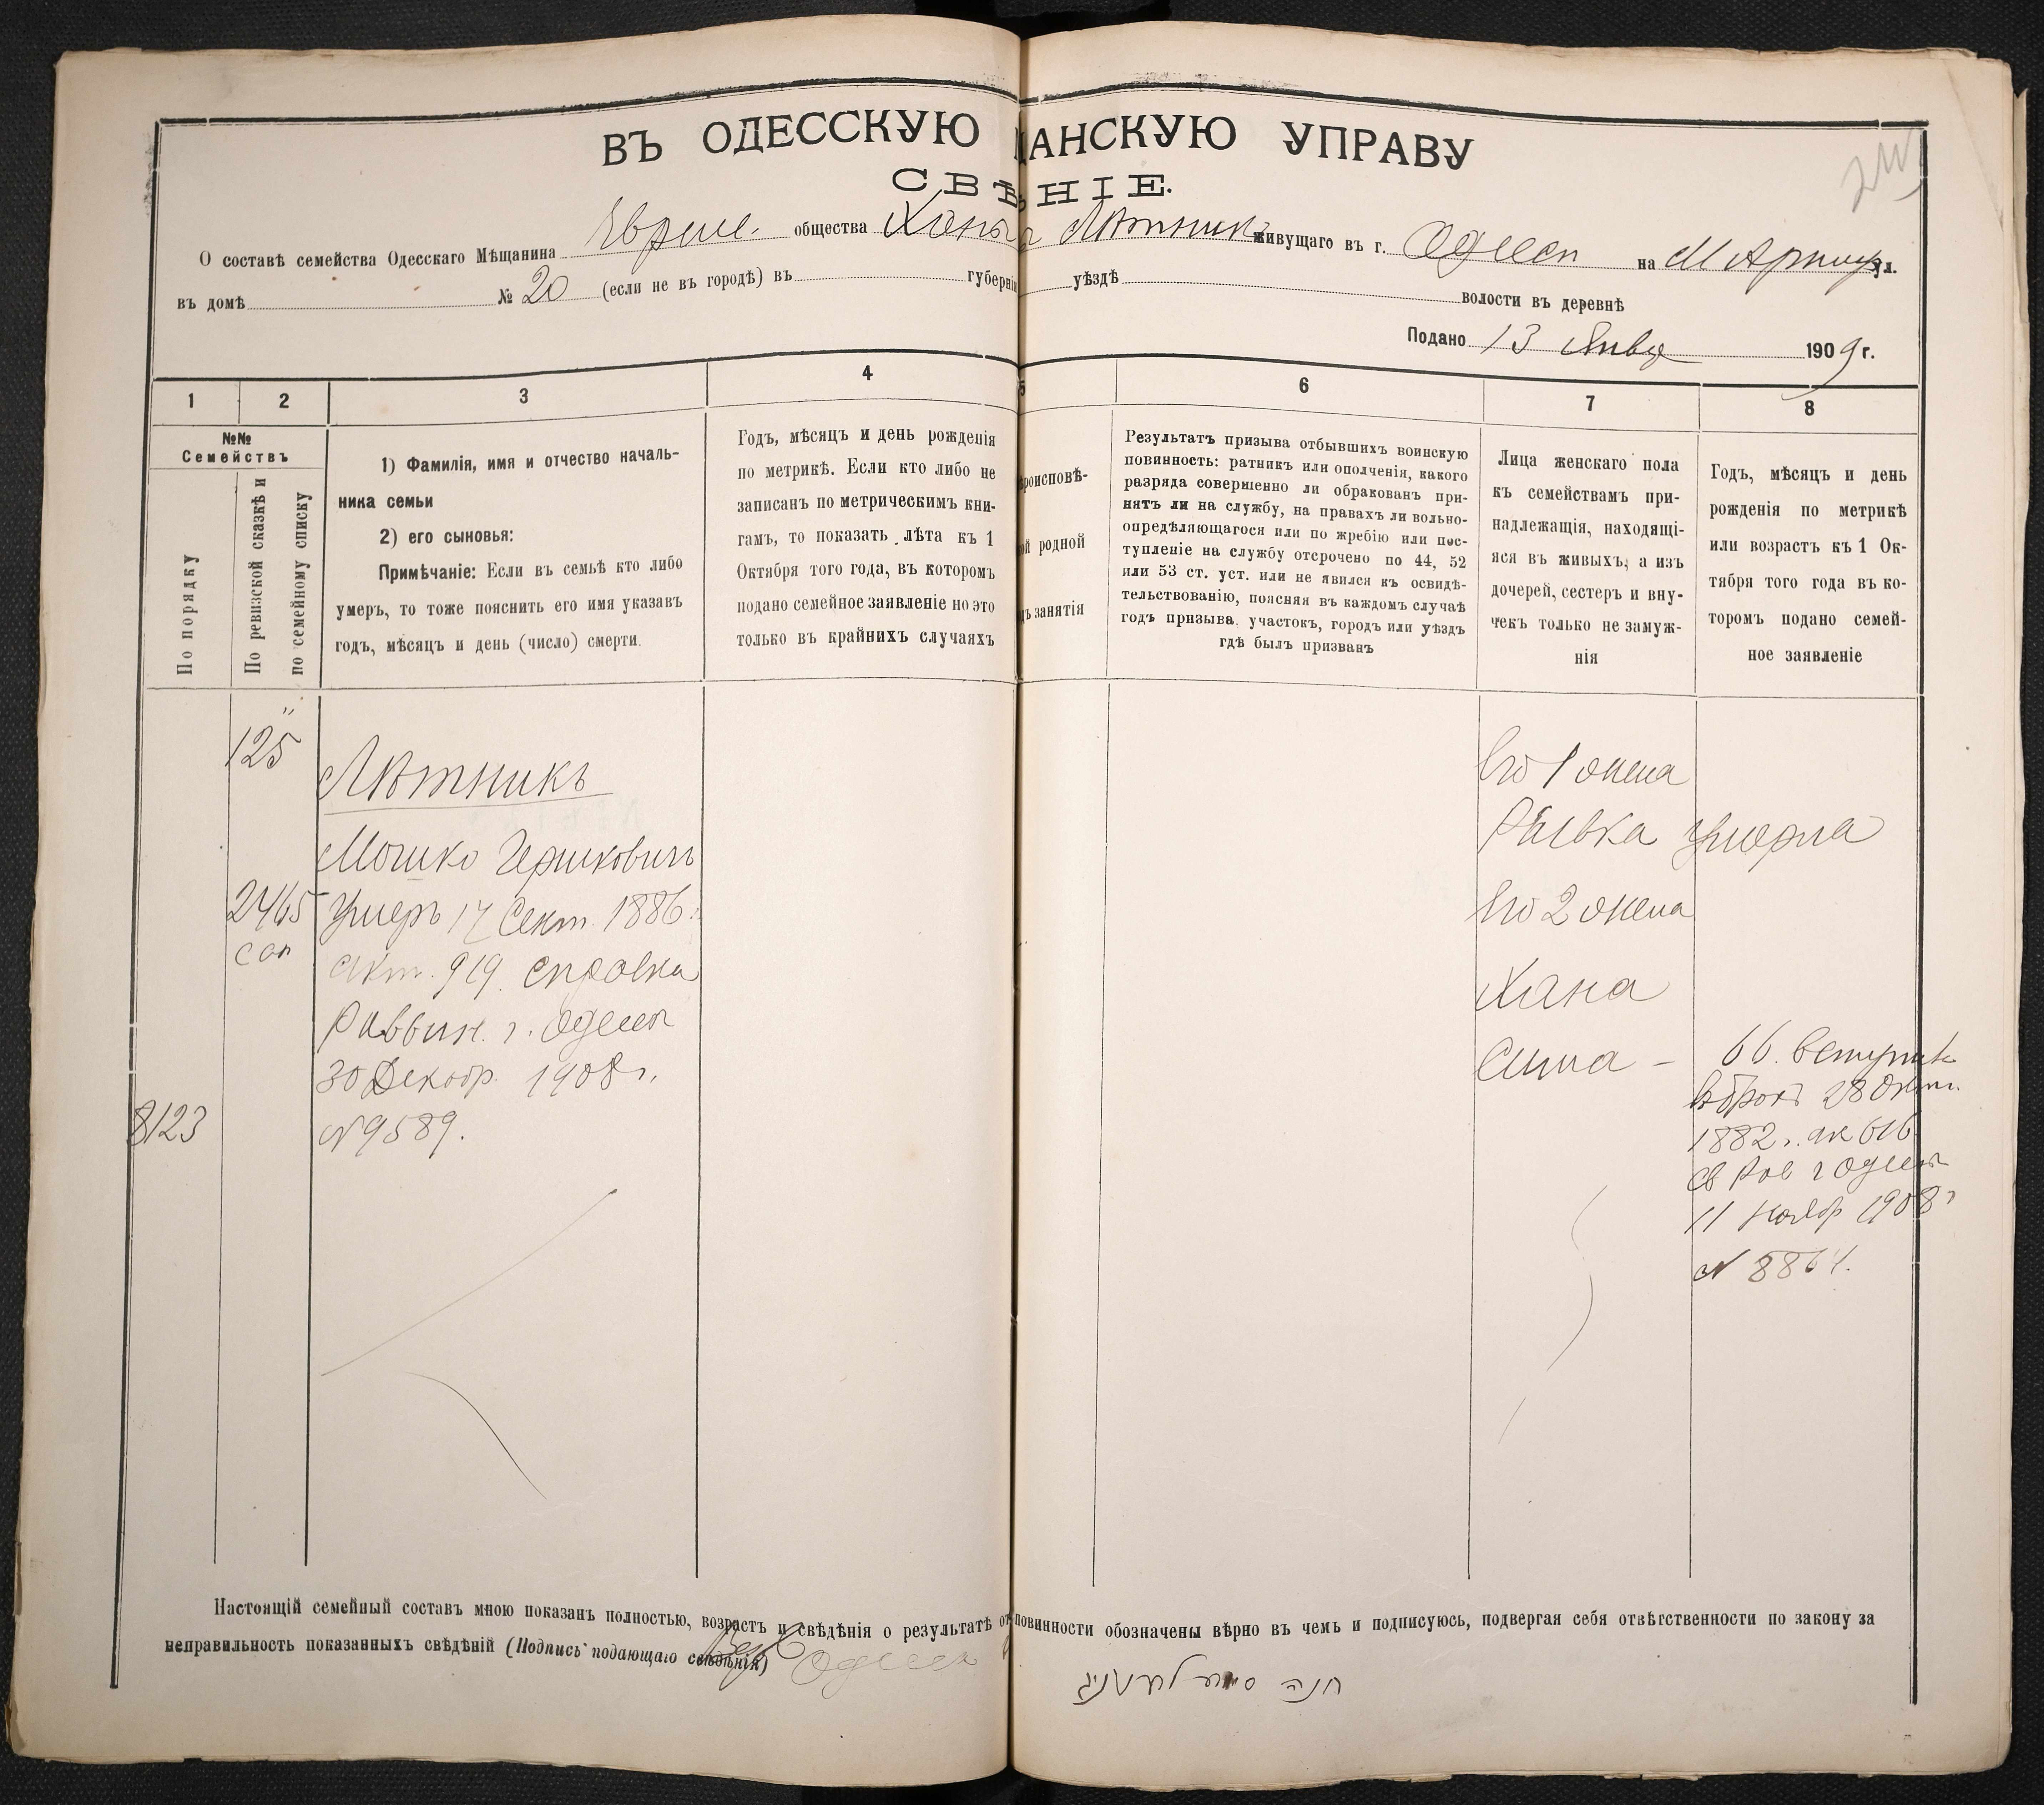 ВЪ ОДЕССКУЮ АНСКУЮ УПРАВУ
СВѢНІЕ.
О составѣ семейства Одесскаго Мѣщанина Еврейс. общества Ханы Лѣтникъ живущаго въ г. Одессѣ на М Арнаут ул.
въ домѣ № 20 (если не въ городѣ) въ губерніи уѣздѣ волости въ деревнѣ
Подано 13 Январ 1909 г.
1 2 3 4 5 6 7 8
№№
Семействъ
По порядку
По ревизской сказкѣ и
по семейному списку
1) Фамилія, имя и отчество началь-
ника семьи
2) его сыновья:
Примѣчаніе: Если въ семьѣ кто либо
умеръ, то тоже пояснить его имя указавъ
годъ, мѣсяцъ и день (число) смерти.
Годъ, мѣсяцъ и день рожденія
по метрикѣ. Если кто либо не
записанъ по метрическимъ кни-
гамъ, то показать лѣта къ 1
Октября того года, въ которомъ
подано семейное заявленіе но это
только въ крайнихъ случаяхъ
роисповѣ-
ой родной
дъ занятія
Результатъ призыва отбывшихъ воинскую
повинность: ратникъ или ополченія, какого
разряда совершенно ли обракованъ при-
нятъ ли на службу, на правахъ ли вольно-
опредѣляющагося или по жребію или пос-
тупленіе на службу отсрочено по 44, 52
или 53 ст. уст. или не явился къ освидѣ-
тельствованію, поясняя въ каждомъ случаѣ
годъ призыва. участокъ, городъ или уѣздъ
гдѣ былъ призванъ
Лица женскаго пола
къ семействамъ при-
надлежащія, находящі-
яся въ живыхъ, а изъ
дочерей, сестеръ и вну-
чекъ только не замуж-
нія
Годъ, мѣсяцъ и день
рожденія по метрикѣ
или возрастъ къ 1 Ок-
тября того года въ ко-
торомъ подано семей-
ное заявленіе
125
Лѣтникъ
Мошко Гершковичъ
2465
Умеръ 17 Сент. 1886 г.
акт. 919. справка
Раввин. г. Одессы
30 Декабр. 1908 г.
8123
№ 9589.
Его 1 жена
Рывка умерла
Его 2 жена
Хана
Сима –
66. вступила
въ бракъ 28 Окт.
1882 г. ак 616
св Рав г Одессы
11 Ноябр 1908 г
№ 8864.
Настоящій семейный составъ мною показанъ полностью, возрастъ и свѣдѣнія о результатѣ от повинности обозначены вѣрно въ чемъ и подписуюсь, подвергая себя отвѣтственности по закону за
неправильность показанныхъ свѣдѣній (Подпись подающаго свѣдѣнія) Одесса
חנה סימע לעטניג